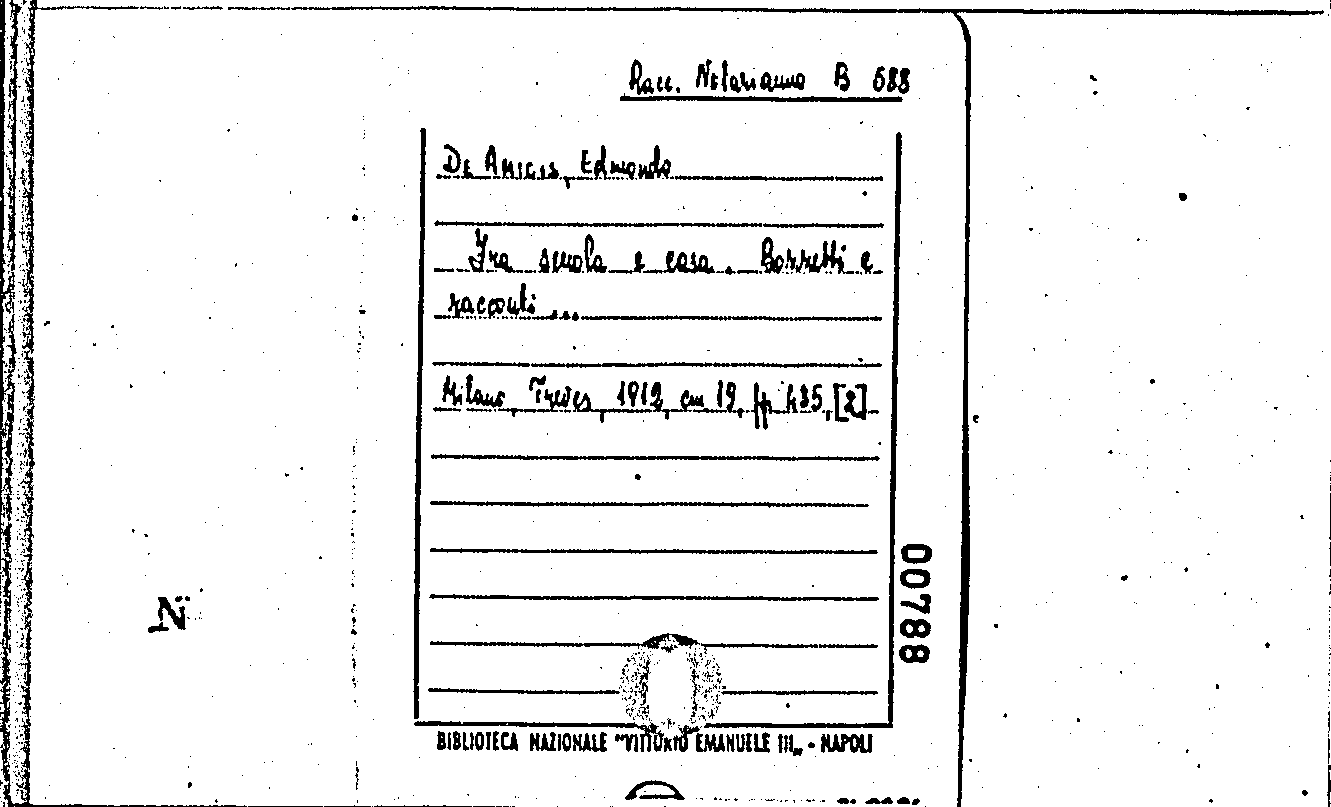 Racc. Notarianno B 688
De Amicis, Edmondo
Fra scuola e casa. Borretti e
racconti ...
Milano, Treves, 1912, cm 19, pp 435, [2]
00788
Ni
BIBLIOTECA NAZIONALE "VITTORIO EMANUELE III" - NAPOLI